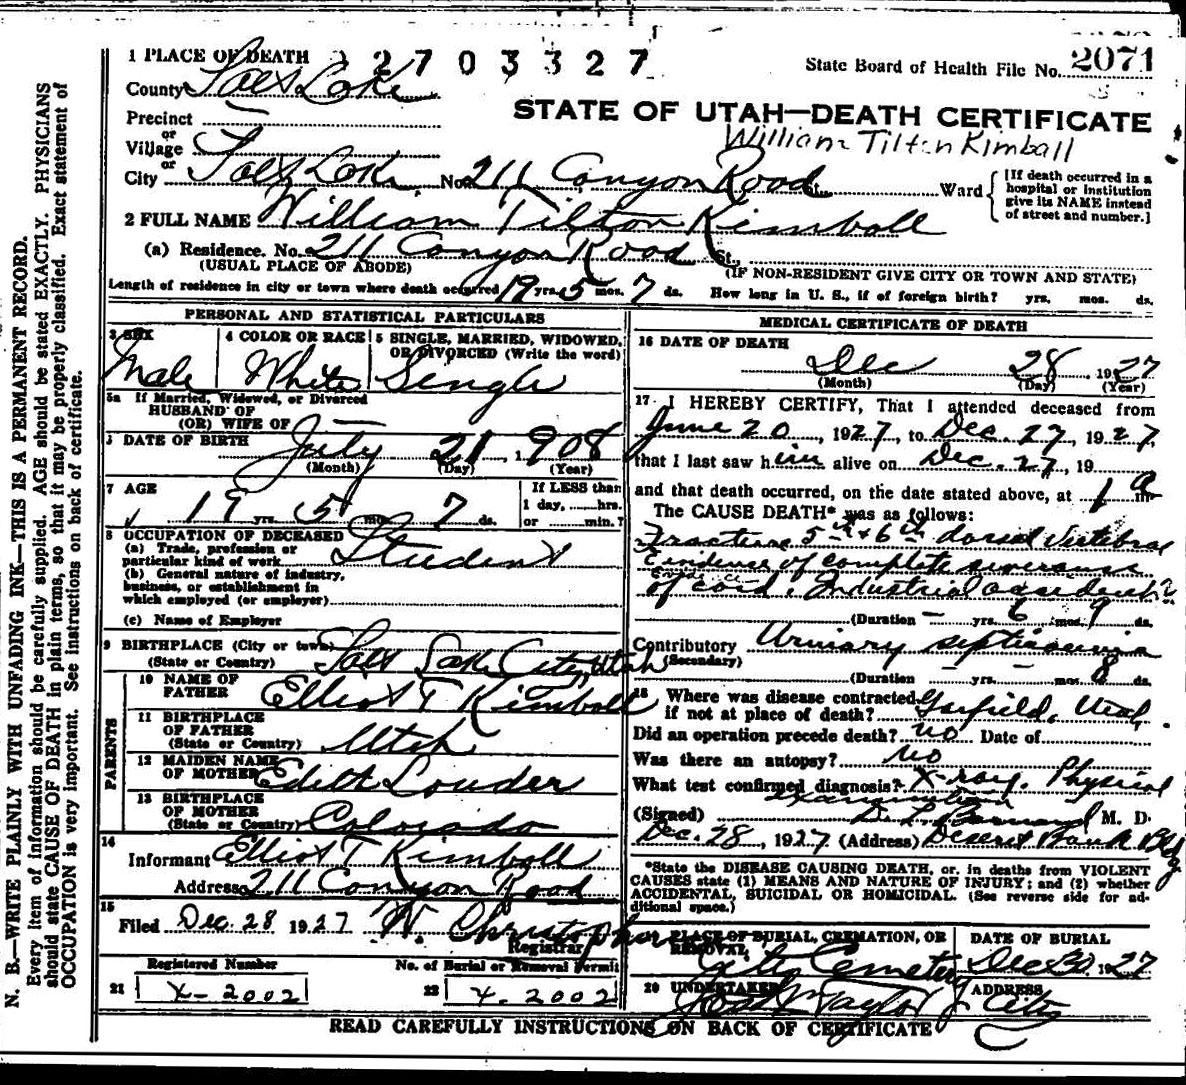 1 PLACE OF DEATH 2 2 7 0 3 3 2 7
State Board of Health File No. 2071
County Salt Lake
STATE OF UTAH—DEATH CERTIFICATE
Precinct —
William Tilton Kimball
or
Village
or
City Salt Lake No. 211 Canyon Road St. Ward
[If death occurred in a hospital or institution give its NAME instead of street and number.]
2 FULL NAME William Tilton Kimball
(a) Residence. No. 211 Canyon Road St.
(USUAL PLACE OF ABODE) (IF NON-RESIDENT GIVE CITY OR TOWN AND STATE)
Length of residence in city or town where death occurred 19 yrs. 5 mos. 7 ds. How long in U. S., if of foreign birth? yrs. mos. ds.
PERSONAL AND STATISTICAL PARTICULARS
3 SEX 4 COLOR OR RACE 5 SINGLE, MARRIED, WIDOWED, OR DIVORCED (Write the word)
Male White Single
5a If Married, Widowed, or Divorced
HUSBAND OF
(OR) WIFE OF —
DATE OF BIRTH July 21, 1908
(Month) (Day) (Year)
7 AGE If LESS than
19 yrs. 5 mo. 7 ds. 1 day, ......hrs.
or ......min.?
8 OCCUPATION OF DECEASED
(a) Trade, profession or
particular kind of work Student
(b) General nature of industry,
business, or establishment in
which employed (or employer)
(c) Name of Employer
9 BIRTHPLACE (City or town) Salt Lake City, Utah
(State or Country)
PARENTS
10 NAME OF
FATHER Elliot T Kimball
11 BIRTHPLACE
OF FATHER
(State or Country) Utah
12 MAIDEN NAME
OF MOTHER Edith Louder
13 BIRTHPLACE
OF MOTHER
(State or Country) Colorado
14
Informant Elliot T Kimball
Address 211 Canyon Road
15
Filed Dec. 28 1927
Registrar
Registered Number No. of Burial or Removal Permit
21 X-2002 22 X-2002
MEDICAL CERTIFICATE OF DEATH
16 DATE OF DEATH
Dec 28, 1927
(Month) (Day) (Year)
17 I HEREBY CERTIFY, That I attended deceased from
June 20, 1927, to Dec. 27, 1927
that I last saw him alive on Dec. 27, 19
and that death occurred, on the date stated above, at 1 a m
The CAUSE DEATH* was as follows:
Fracture 5th + 6th dorsal Vertebrae
Evidence of complete severance
of cord. Industrial accident
(Duration — yrs. 6 mos. 9 ds.
Contributory Urinary septicaemia
(Secondary)
(Duration yrs. mos. 8 ds.
18 Where was disease contracted
if not at place of death? Garfield, Utah.
Did an operation precede death? no Date of
Was there an autopsy? No
What test confirmed diagnosis? X-ray. Physical
examination
(Signed) M. D.
Dec. 28, 1927 (Address) Deseret Bank Bldg
*State the DISEASE CAUSING DEATH, or, in deaths from VIOLENT
CAUSES state (1) MEANS AND NATURE OF INJURY; and (2) whether
ACCIDENTAL, SUICIDAL OR HOMICIDAL. (See reverse side for ad-
ditional space.)
PLACE OF BURIAL, CREMATION, OR REMOVAL DATE OF BURIAL
City Cemetery Dec 30, 1927
20 UNDERTAKER ADDRESS
Taylor City
READ CAREFULLY INSTRUCTIONS ON BACK OF CERTIFICATE
N. B.—WRITE PLAINLY WITH UNFADING INK—THIS IS A PERMANENT RECORD.
Every item of information should be carefully supplied. AGE should be stated EXACTLY. PHYSICIANS
should state CAUSE OF DEATH in plain terms, so that it may be properly classified. Exact statement of
OCCUPATION is very important. See instructions on back of certificate.